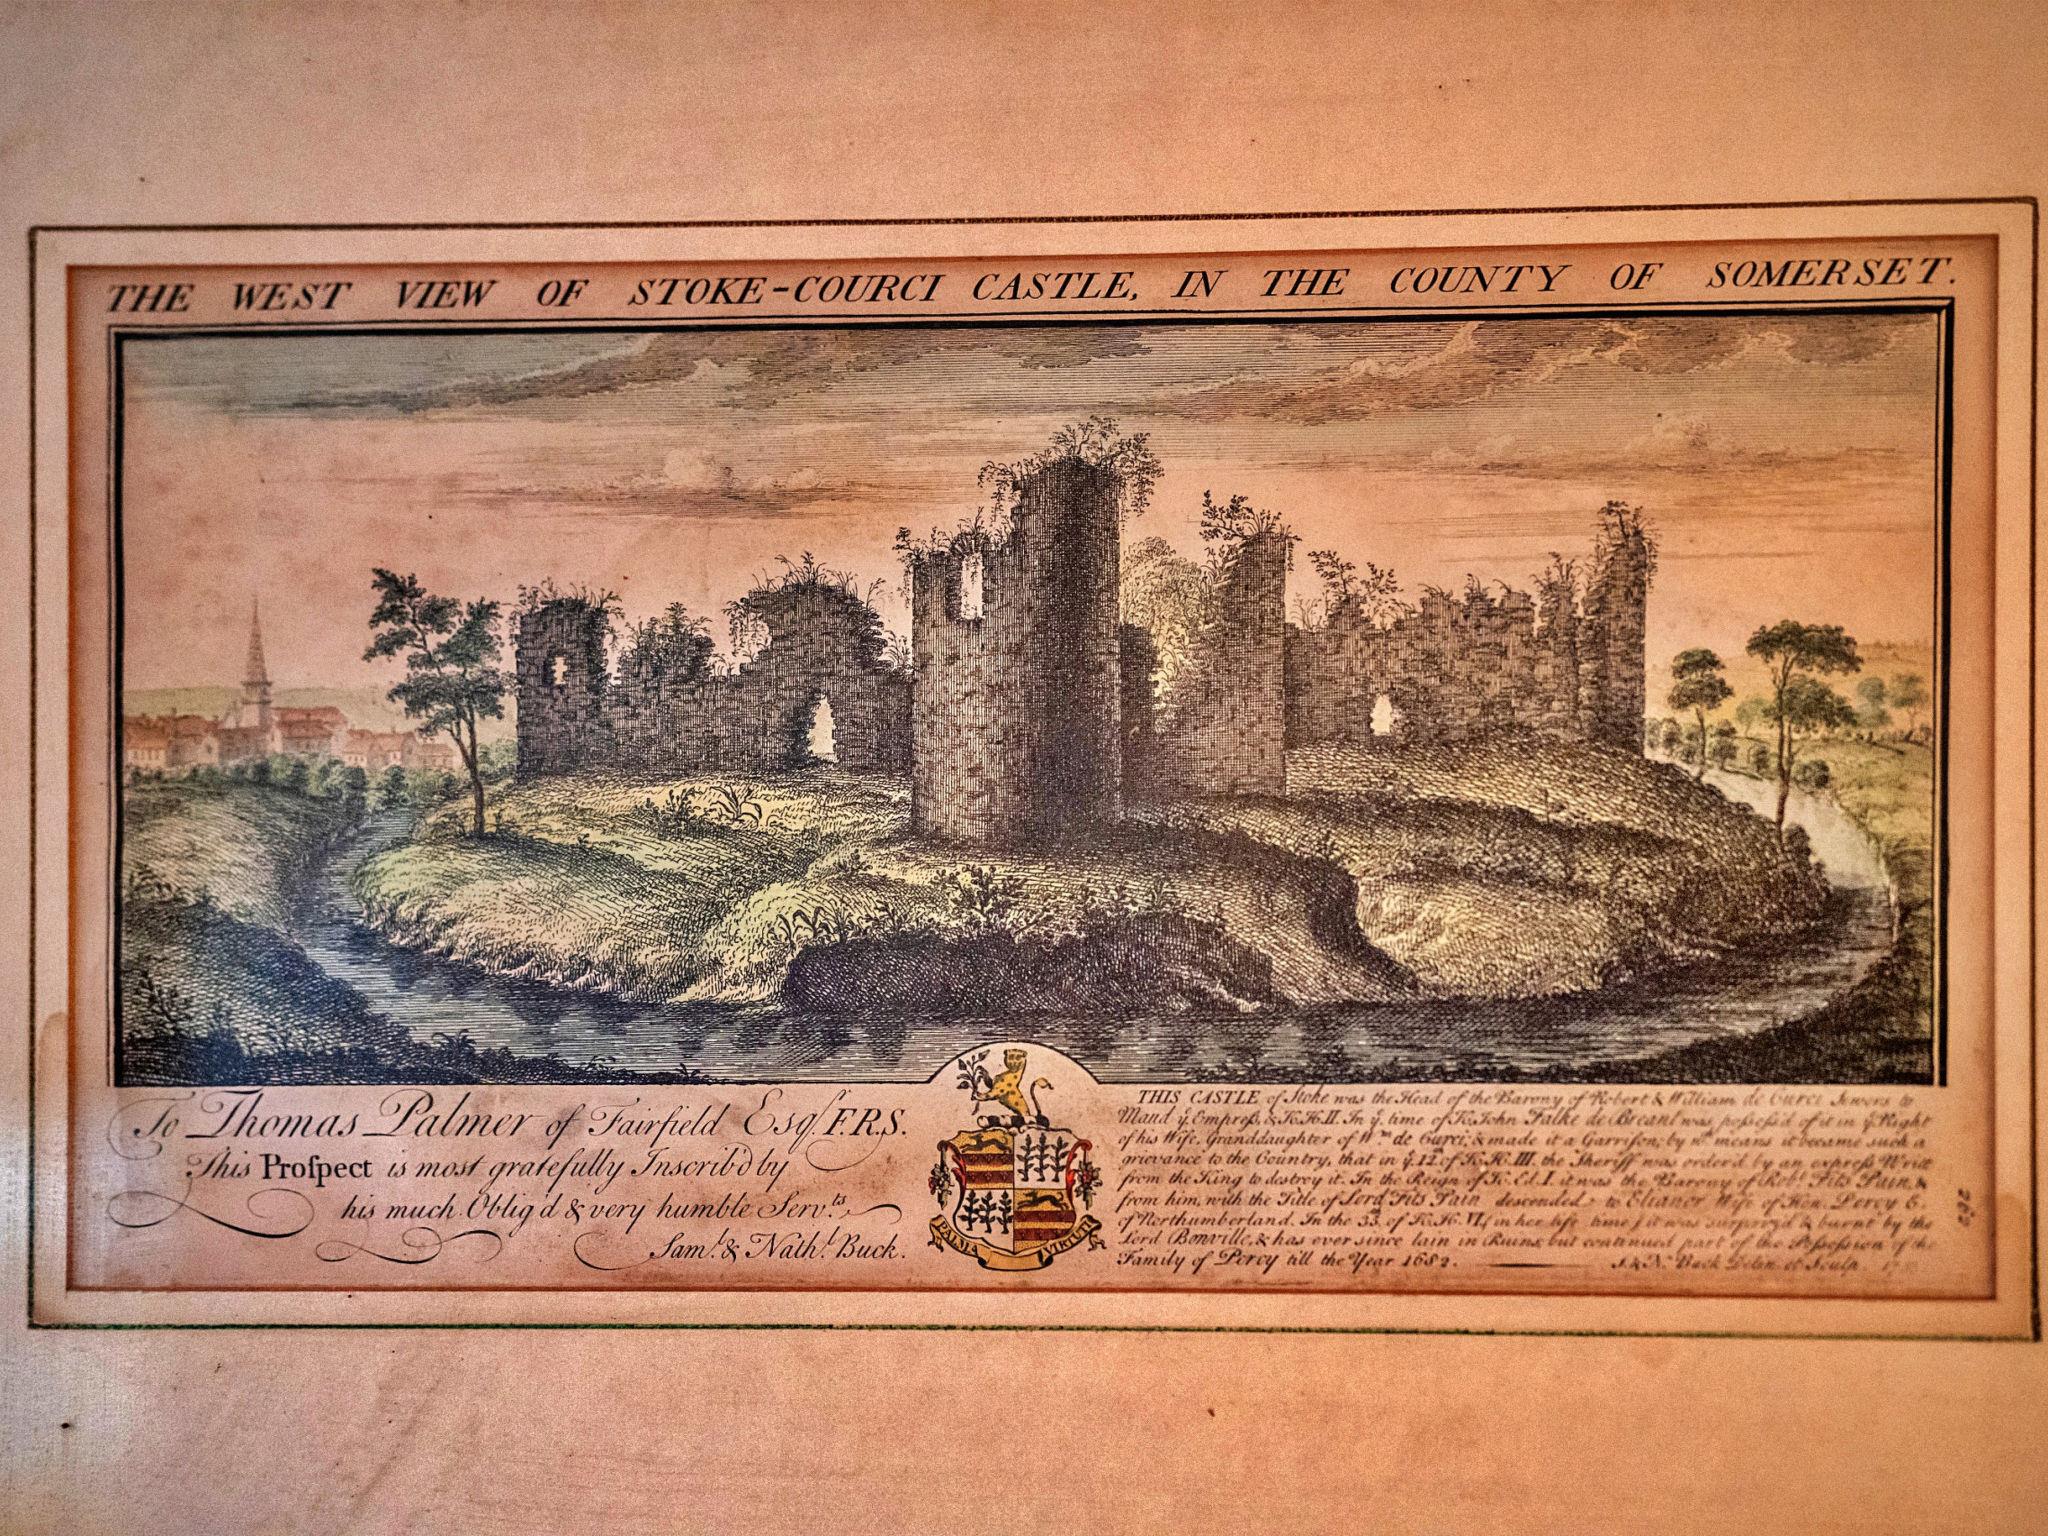 THE WEST VIEW OF STOKE-COURCI CASTLE, IN THE COUNTY OF SOMERSET.
To Thomas Palmer of Fairfield Esqr. F.R.S.
This Proſpect is most gratefully Inscrib'd by
his much Oblig'd & very humble Serv.ts
Sam.l & Nath.l Buck.
PALMA VIRTUTI
THIS CASTLE of Stoke was the Head of the Barony of Robert & William de Curci Sewers to
Maud ye Empreſs, & K. H. II. In ye time of K. John Falke de Breant was poſseſs'd of it in ye Right
of his Wife, Granddaughter of Wm. de Curci, & made it a Garriſon; by wch. means it became such a
grievance to the Country, that in ye 12th. of K. H. III. the Sheriff was order'd by an expreſs Writt
from the King to destroy it. In the Reign of K. Ed. I. it was the Barony of Robt. Fits Pain, &
from him, with the Title of Lord Fits Pain descended to Elianor Wife of Hen. Percy E.
of Northumberland. In the 33d. of K. H. VI. (in her life time) it was surpriz'd & burnt by the
Lord Bonville, & has ever since lain in Ruins, but continued part of the Poſseſsion of the
Family of Percy till the Year 1682.
S. & N. Buck Delin. et Sculp.